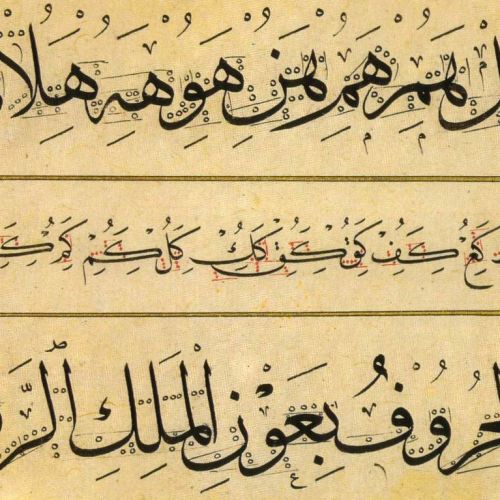 هُمِ هَمِ هُنَ هُوَ هِهِ هَلا
كَعُ كَفِ كَقُ كَقِ كَكُ كِلُ كَمِ كَمِ
حُرُوفُ بِعَوْنِ الْمَلِكِ